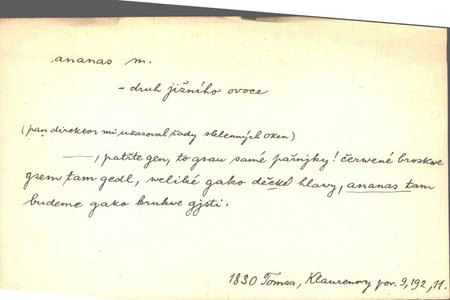 ananas m.
- druh jižního ovoce
(pan direktor mi ukazoval řady sklenných oken)
—, patřte gen, to gsau samé pařnjky! červené broskwe
gsem tam gedl, weliké gako děcké hlawy, ananas tam
budeme gako brukwe gjsti.
1830 Tomsa, Klaurenovy pov. 9, 192, 11.